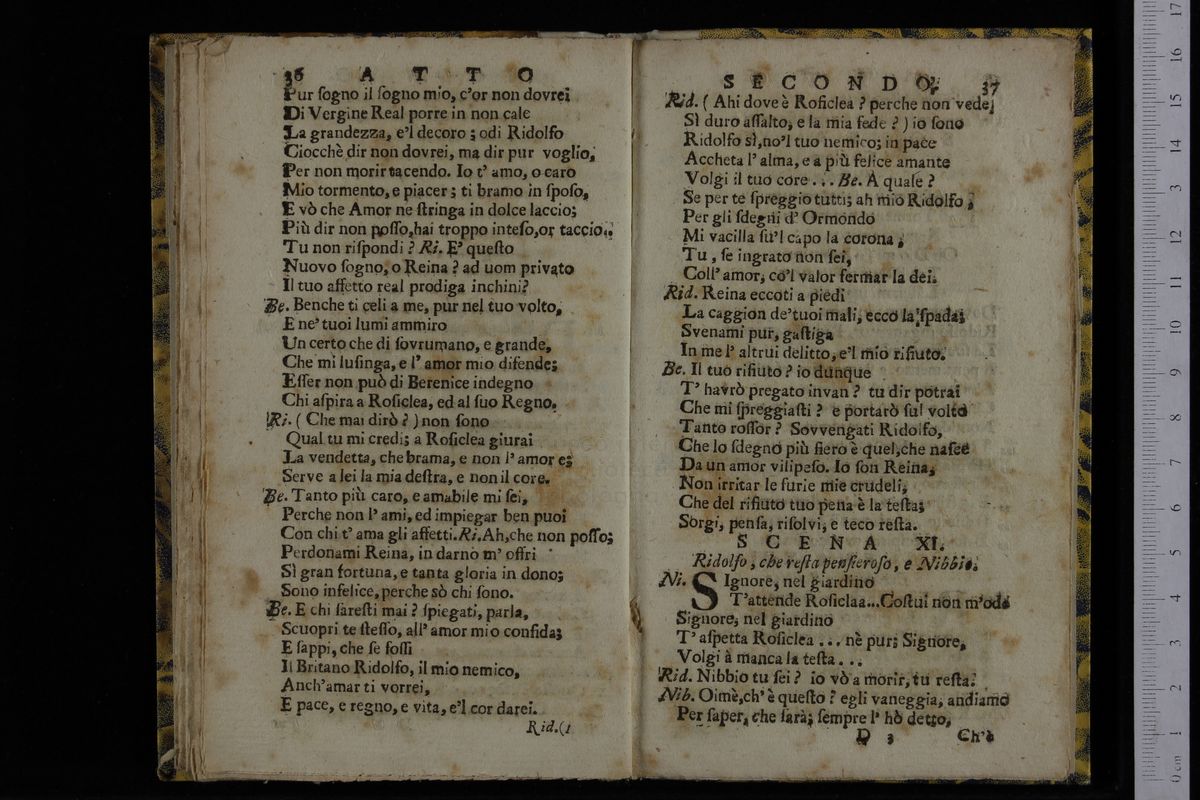 36 A T T O
Pur ſogno il ſogno mio, c'or non dovrei
Di Vergine Real porre in non cale
La grandezza, e'l decoro; odi Ridolfo
Ciocchè dir non dovrei, ma dir pur voglio,
Per non morir tacendo. Io t' amo, o caro
Mio tormento, e piacer; ti bramo in ſpoſo,
E vò che Amor ne ſtringa in dolce laccio;
Più dir non poſſo,hai troppo inteſo,or taccio..
Tu non riſpondi? Ri. E' queſto
Nuovo ſogno, o Reina? ad uom privato
Il tuo affetto real prodiga inchini?
Be. Benche ti celi a me, pur nel tuo volto,
E ne' tuoi lumi ammiro
Un certo che di ſovrumano, e grande,
Che mi luſinga, e l' amor mio difende;
Eſſer non può di Berenice indegno
Chi aſpira a Roſiclea, ed al ſuo Regno.
Ri. (Che mai dirò?) non ſono
Qual tu mi credi; a Roſiclea giurai
La vendetta, che brama, e non l' amore;
Serve a lei la mia deſtra, e non il core.
Be. Tanto più caro, e amabile mi ſei,
Perche non l' ami, ed impiegar ben puoi
Con chi t' ama gli affetti. Ri. Ah,che non poſſo;
Perdonami Reina, in darno m' offri
Sì gran fortuna, e tanta gloria in dono;
Sono infelice, perche sò chi ſono.
Be. E chi ſareſti mai? ſpiegati, parla,
Scuopri te ſteſſo, all' amor mio confida;
E ſappi, che ſe foſſi
Il Britano Ridolfo, il mio nemico,
Anch'amar ti vorrei,
E pace, e regno, e vita, e'l cor darei.
Rid.(
S E C O N D O. 37
Rid. (Ahi dove è Roſiclea? perche non vede,
Sì duro aſſalto, e la mia fede?) io ſono
Ridolfo sì,no'l tuo nemico; in pace
Accheta l' alma, e a più felice amante
Volgi il tuo core... Be. A quale?
Se per te ſpreggio tutti; ah mio Ridolfo,
Per gli ſdegni d' Ormondo
Mi vacilla ſu'l capo la corona,
Tu, ſe ingrato non ſei,
Coll' amor, co'l valor fermar la dei.
Rid. Reina eccoti a piedi
La caggion de' tuoi mali, ecco la ſpada;
Svenami pur, gaſtiga
In me l' altrui delitto, e'l mio rifiuto.
Be. Il tuo rifiuto? io dunque
T' havrò pregato invan? tu dir potrai
Che mi ſpreggiaſti? e portarò ſul volto
Tanto roſſor? Sovvengati Ridolfo,
Che lo ſdegno più fiero è quel,che naſce
Da un amor vilipeſo. Io ſon Reina,
Non irritar le furie mie crudeli,
Che del rifiuto tuo pena è la teſta;
Sorgi, penſa, riſolvi, e teco reſta.
S C E N A XI.
Ridolfo, che reſta penſieroſo, e Nibbio.
Ni. SIgnore, nel giardino
T'attende Roſiclaa...Coſtui non m'ode
Signore, nel giardino
T' aſpetta Roſiclea... nè pur; Signore,
Volgi à manca la teſta...
Rid. Nibbio tu ſei? io vò a morir, tu reſta.
Nib. Oimè,ch' è queſto? egli vaneggia, andiamo
Per ſaper, che ſarà; ſempre l' hò detto,
D 3 Ch'è